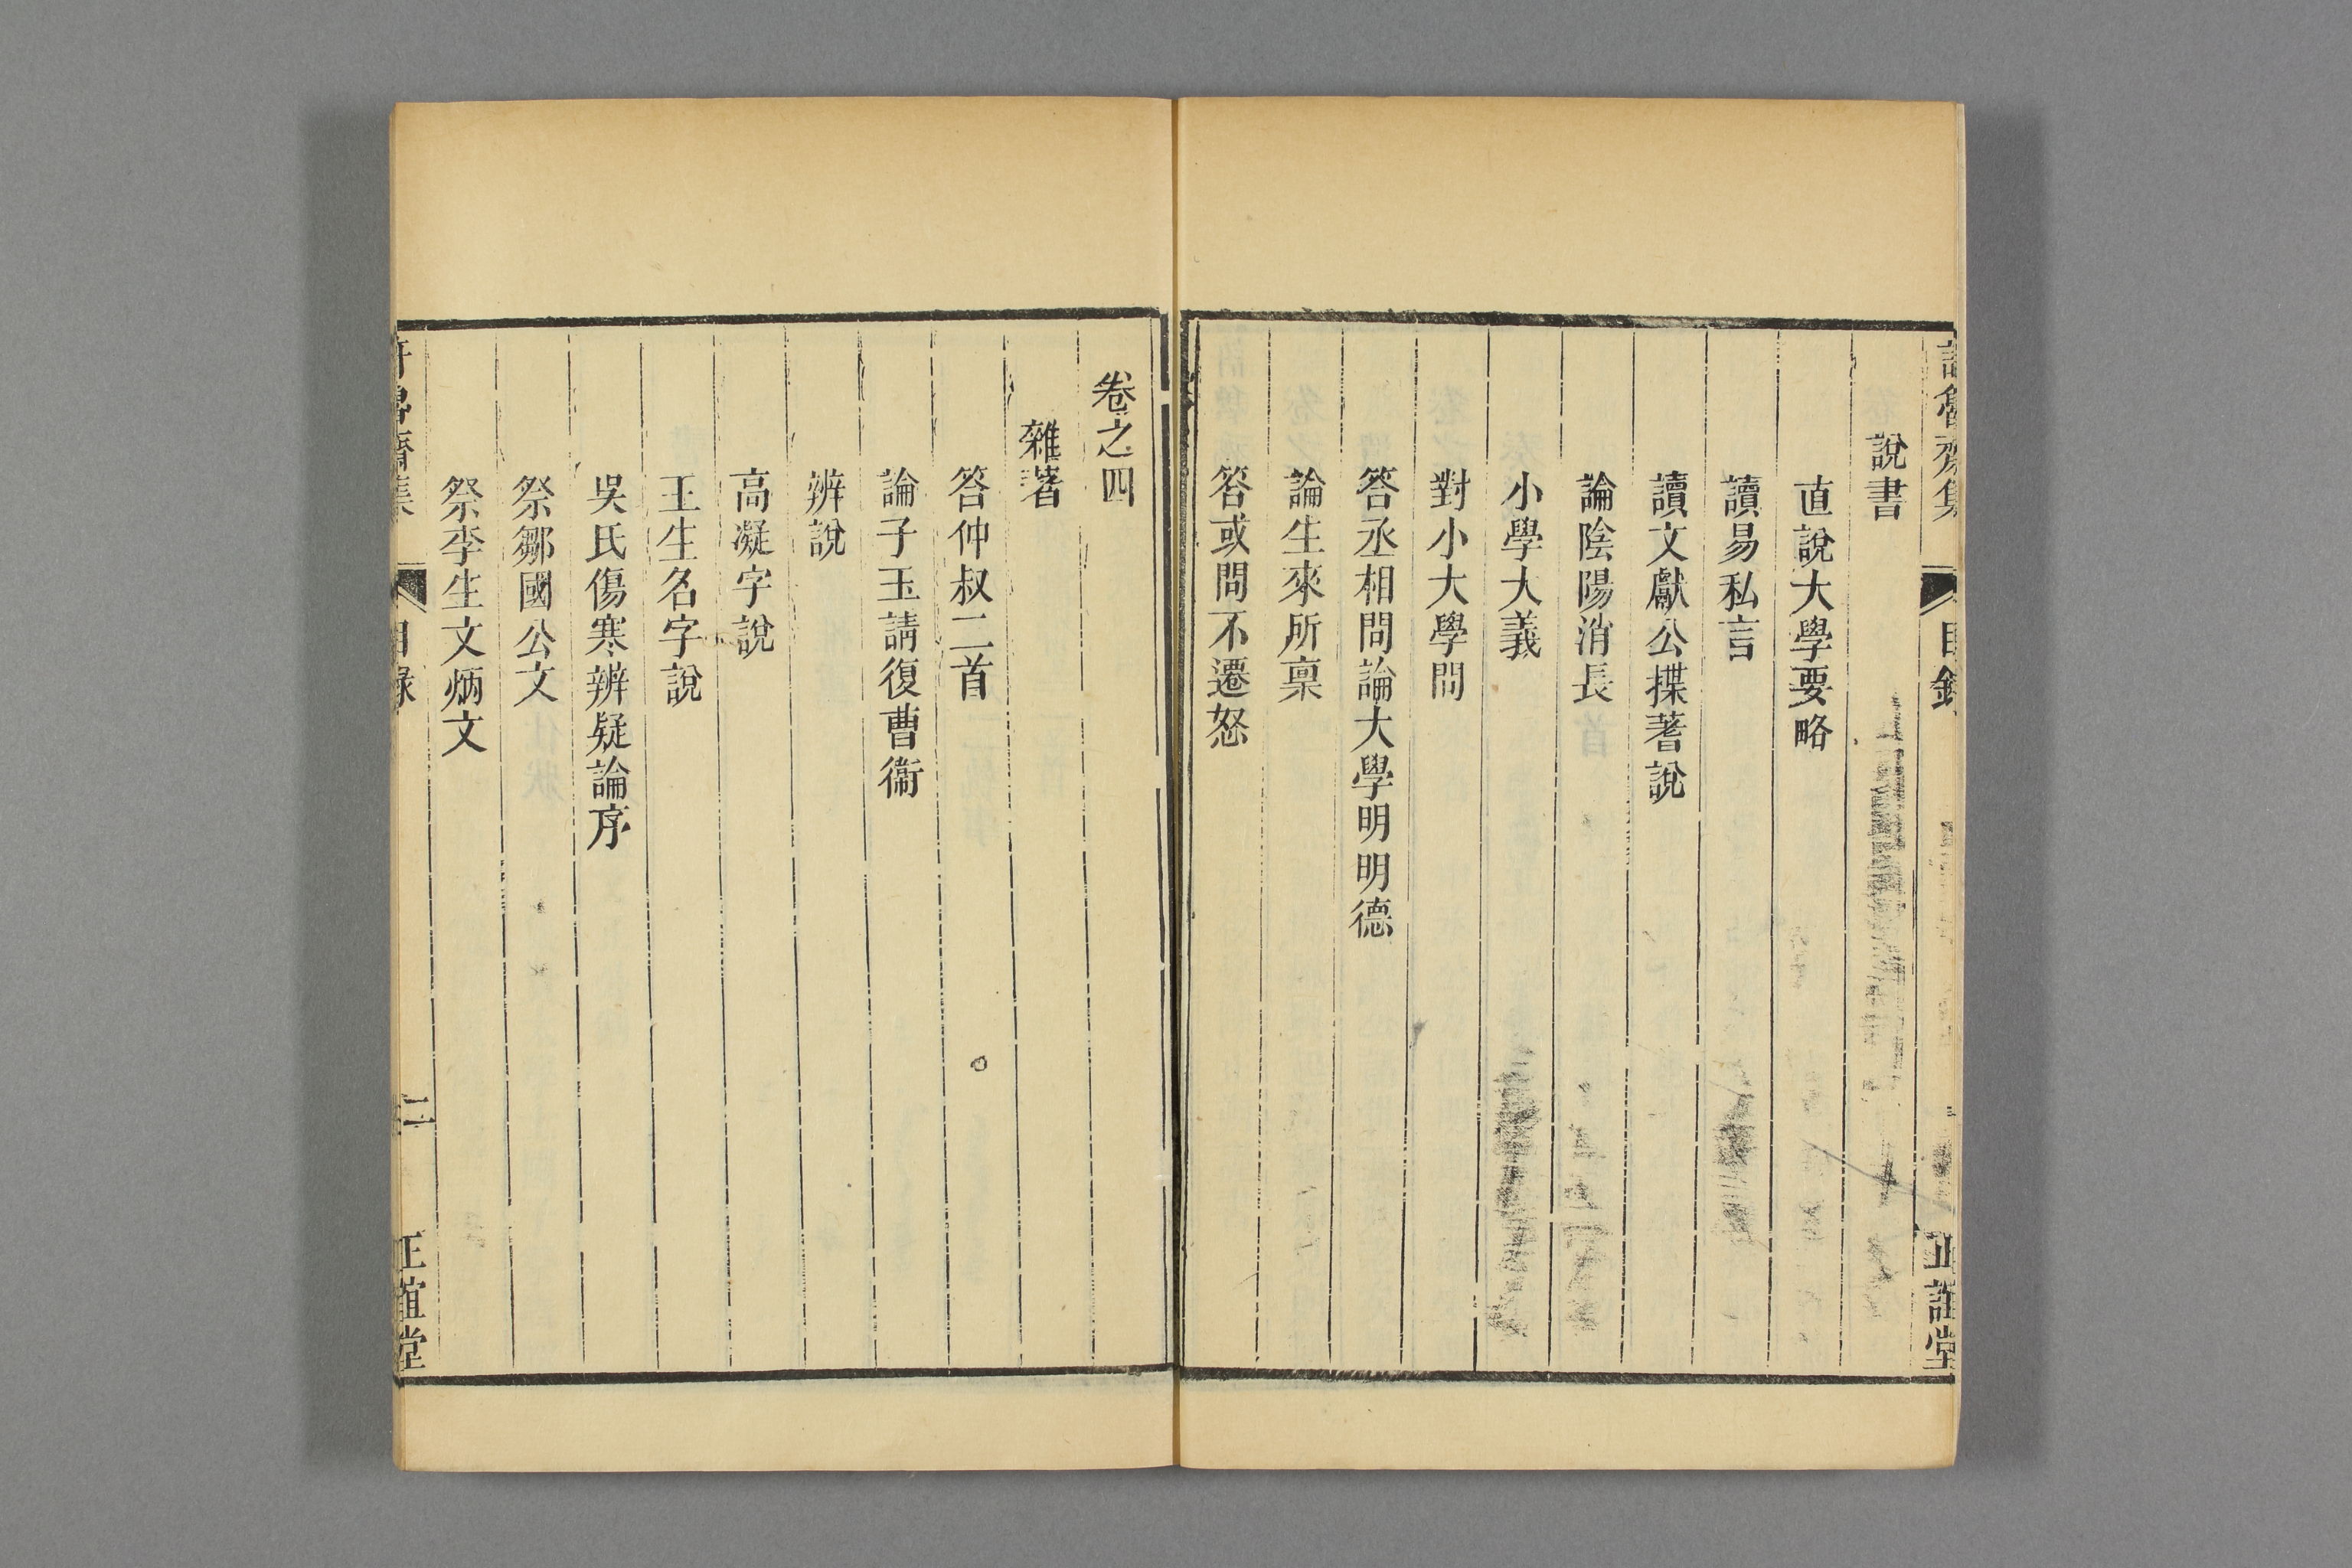 許魯齋集 目錄 正誼堂
說書
直說大學要略
讀易私言
讀文獻公揲蓍說
論陰陽消長
小學大義
對小大學問
答丞相問論大學明明德
論生來所禀
答或問不遷怒
卷之四
雜著
答仲叔二首
論子玉請復曹衞
辨說
高凝字說
王生名字說
吳氏傷寒辨疑論序
祭鄒國公文
祭李生文炳文
許魯齋集 目錄 二 正誼堂